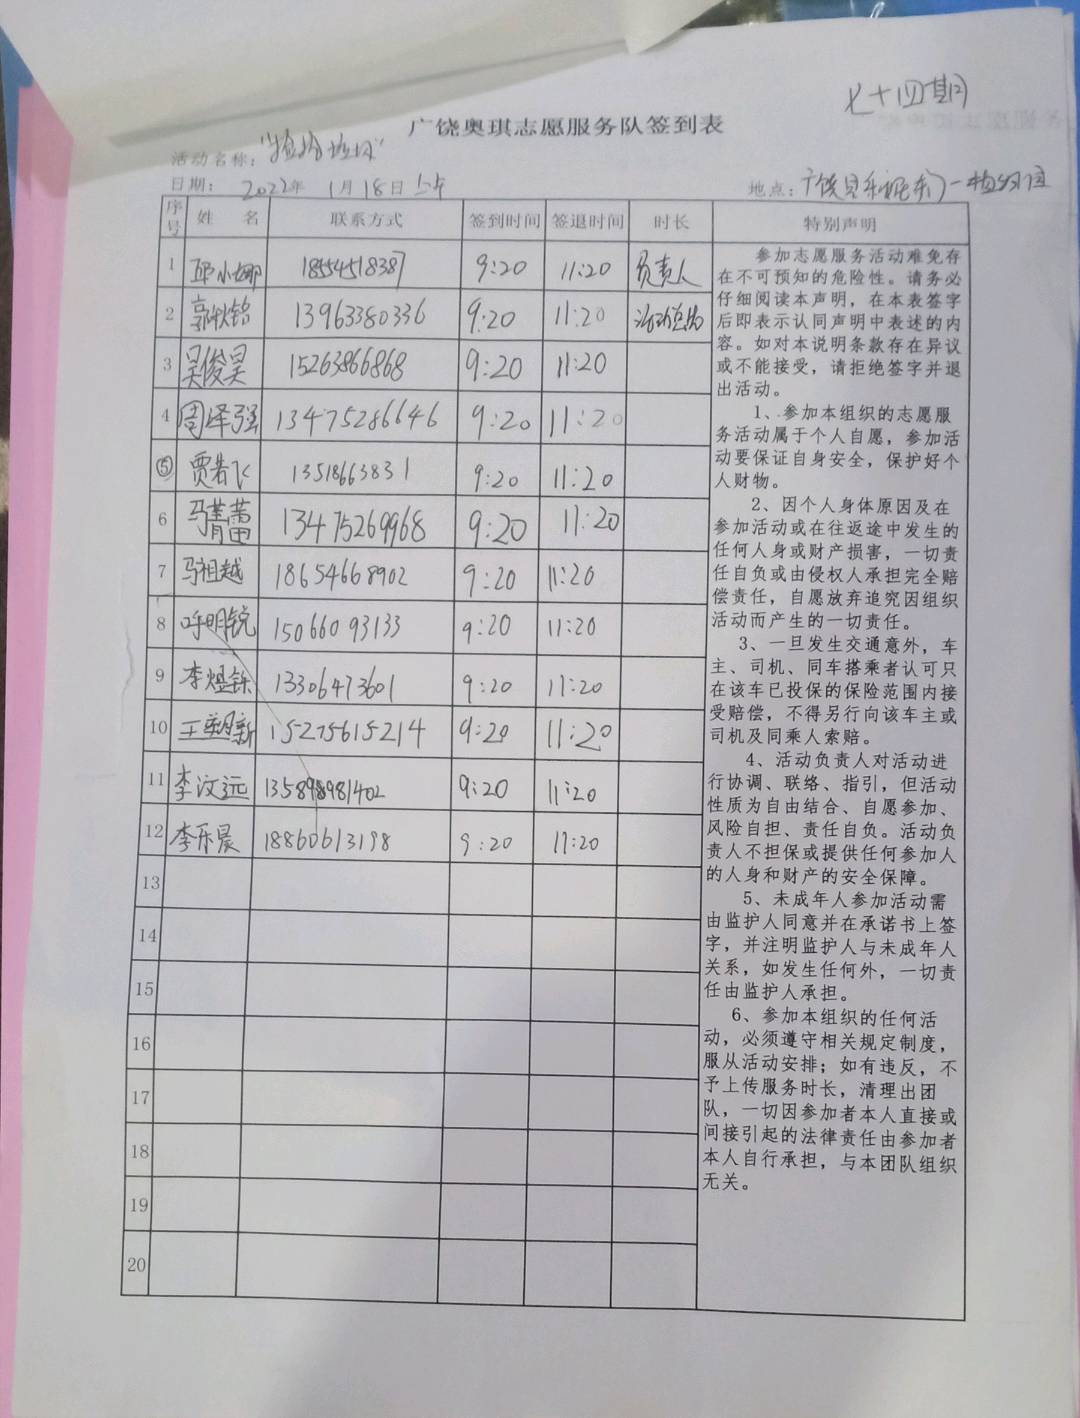 七十四期
广饶奥琪志愿服务队签到表
活动名称：
日期： 2022年 1月18日上午
地点：
序号 姓 名 联系方式 签到时间 签退时间 时长 特别声明
1 邱小娜 18554518387 9:20 11:20 负责人
2 郭秋铭 13963380336 9:20 11:20
3 吴俊昊 15263866868 9:20 11:20
4 周泽强 13475286646 9:20 11:20
5 贾若飞 13518663831 9:20 11:20
6 马菁蕾 13475269968 9:20 11:20
7 马祖越 18654668902 9:20 11:20
8 呼明锐 15066093133 9:20 11:20
9 李煜铄 13306473601 9:20 11:20
10 王塑新 15275615214 9:20 11:20
11 李汶远 13589891402 9:20 11:20
12 李乐晨 18860613198 9:20 11:20
13
14
15
16
17
18
19
20
参加志愿服务活动难免存
在不可预知的危险性。请务必
仔细阅读本声明，在本表签字
后即表示认同声明中表述的内
容。如对本说明条款存在异议
或不能接受，请拒绝签字并退
出活动。
1、参加本组织的志愿服
务活动属于个人自愿，参加活
动要保证自身安全，保护好个
人财物。
2、因个人身体原因及在
参加活动或在往返途中发生的
任何人身或财产损害，一切责
任自负或由侵权人承担完全赔
偿责任，自愿放弃追究因组织
活动而产生的一切责任。
3、一旦发生交通意外，车
主、司机、同车搭乘者认可只
在该车已投保的保险范围内接
受赔偿，不得另行向该车主或
司机及同乘人索赔。
4、活动负责人对活动进
行协调、联络、指引，但活动
性质为自由结合、自愿参加、
风险自担、责任自负。活动负
责人不担保或提供任何参加人
的人身和财产的安全保障。
5、未成年人参加活动需
由监护人同意并在承诺书上签
字，并注明监护人与未成年人
关系，如发生任何外，一切责
任由监护人承担。
6、参加本组织的任何活
动，必须遵守相关规定制度，
服从活动安排；如有违反，不
予上传服务时长，清理出团
队，一切因参加者本人直接或
间接引起的法律责任由参加者
本人自行承担，与本团队组织
无关。